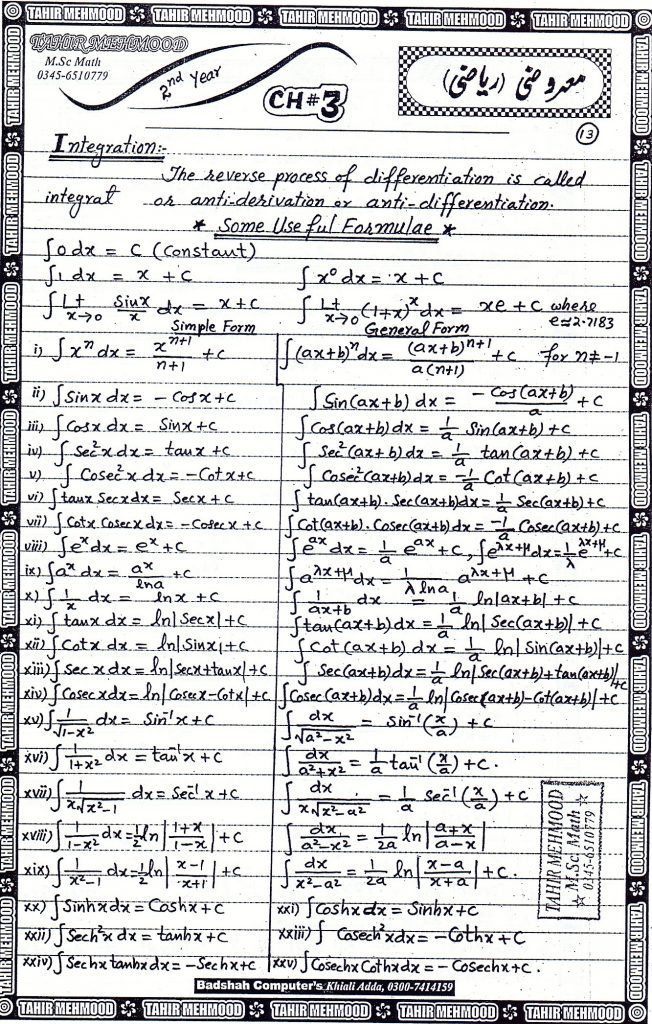 TAHIR MEHMOOD TAHIR MEHMOOD TAHIR MEHMOOD TAHIR MEHMOOD TAHIR MEHMOOD
TAHIR MEHMOOD
M.Sc Math
0345-6510779
2nd Year
CH#3
معروضی (ریاضی)
13
Integration:-
The reverse process of differentiation is called
integral or anti-derivation or anti-differentiation.
* Some Useful Formulae *
∫0 dx = C (Constant)
∫1 dx = x + C    ∫x⁰ dx = x + C
∫ Lt x→0 Sinx/x dx = x + C    ∫ Lt x→0 (1+x)^x dx = xe + C where e≈2.7183
Simple Form    General Form
i) ∫xⁿ dx = x^(n+1)/(n+1) + C    ∫(ax+b)ⁿ dx = (ax+b)^(n+1)/a(n+1) + C for n≠-1
ii) ∫Sinx dx = -Cosx + C    ∫Sin(ax+b) dx = -Cos(ax+b)/a + C
iii) ∫Cosx dx = Sinx + C    ∫Cos(ax+b) dx = 1/a Sin(ax+b) + C
iv) ∫Sec²x dx = tanx + C    ∫Sec²(ax+b) dx = 1/a tan(ax+b) + C
v) ∫Cosec²x dx = -Cotx + C    ∫Cosec²(ax+b) dx = -1/a Cot(ax+b) + C
vi) ∫tanx Secx dx = Secx + C    ∫tan(ax+b).Sec(ax+b) dx = 1/a Sec(ax+b) + C
vii) ∫Cotx Cosecx dx = -Cosecx + C    ∫Cot(ax+b).Cosec(ax+b) dx = -1/a Cosec(ax+b) + C
viii) ∫e^x dx = e^x + C    ∫e^(ax) dx = 1/a e^(ax) + C, ∫e^(λx+μ) dx = 1/λ e^(λx+μ) + C
ix) ∫a^x dx = a^x/lna + C    ∫a^(λx+μ) dx = 1/(λ lna) a^(λx+μ) + C
x) ∫1/x dx = lnx + C    ∫1/(ax+b) dx = 1/a ln|ax+b| + C
xi) ∫tanx dx = ln|Secx| + C    ∫tan(ax+b) dx = 1/a ln|Sec(ax+b)| + C
xii) ∫Cotx dx = ln|Sinx| + C    ∫Cot(ax+b) dx = 1/a ln|Sin(ax+b)| + C
xiii) ∫Secx dx = ln|Secx+tanx| + C    ∫Sec(ax+b) dx = 1/a ln|Sec(ax+b)+tan(ax+b)| + C
xiv) ∫Cosecx dx = ln|Cosecx-Cotx| + C    ∫Cosec(ax+b) dx = 1/a ln|Cosec(ax+b)-Cot(ax+b)| + C
xv) ∫1/√(1-x²) dx = Sin⁻¹x + C    ∫dx/√(a²-x²) = Sin⁻¹(x/a) + C
xvi) ∫1/(1+x²) dx = tan⁻¹x + C    ∫dx/(a²+x²) = 1/a tan⁻¹(x/a) + C.
xvii) ∫1/(x√(x²-1)) dx = Sec⁻¹x + C    ∫dx/(x√(x²-a²)) = 1/a Sec⁻¹(x/a) + C
xviii) ∫1/(1-x²) dx = 1/2 ln|(1+x)/(1-x)| + C    ∫dx/(a²-x²) = 1/2a ln|(a+x)/(a-x)|
xix) ∫1/(x²-1) dx = 1/2 ln|(x-1)/(x+1)| + C    ∫dx/(x²-a²) = 1/2a ln|(x-a)/(x+a)| + C.
xx) ∫Sinhx dx = Coshx + C    xxi) ∫Coshx dx = Sinhx + C
xxii) ∫Sech²x dx = tanhx + C    xxiii) ∫Cosech²x dx = -Cothx + C
xxiv) ∫Sechx tanhx dx = -Sechx + C    xxv) ∫Cosechx Cothx dx = -Cosechx + C.
TAHIR MEHMOOD
☆ M.Sc Math ☆
0345-6510779
Badshah Computer's Khiali Adda, 0300-7414159
TAHIR MEHMOOD TAHIR MEHMOOD TAHIR MEHMOOD TAHIR MEHMOOD TAHIR MEHMOOD